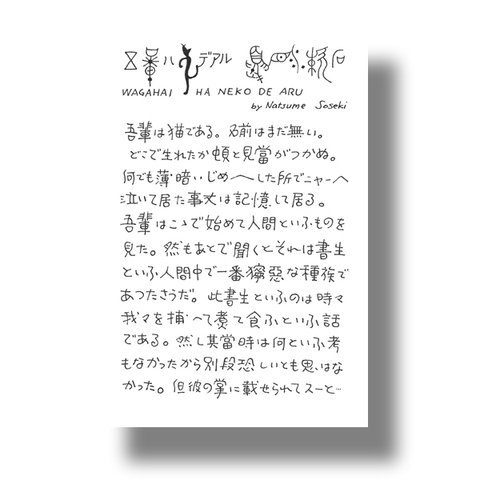 ハ デアル
WAGAHAI HA NEKO DE ARU
by Natsume Soseki
吾輩は猫である。名前はまだ無い。
どこで生れたか頓と見當がつかぬ。
何でも薄暗いじめ〱した所でニャー〱
泣いて居た事丈は記憶して居る。
吾輩はこゝで始めて人間といふものを
見た。然もあとで聞くとそれは書生
といふ人間中で一番獰惡な種族で
あつたさうだ。此書生といふのは時々
我々を捕へて煮て食ふといふ話
である。然し其當時は何といふ考
もなかつたから別段恐しいとも思はな
かつた。但彼の掌に載せられてスーと…